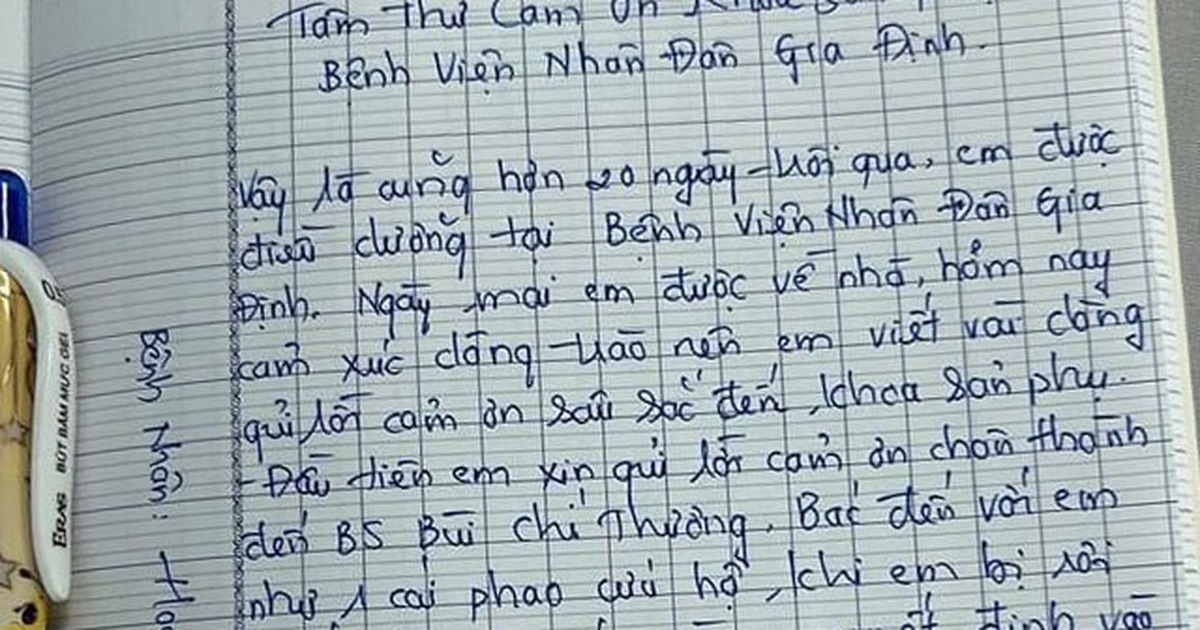 Tâm Thư Cảm Ơn Khoa
Bệnh Viện Nhân Dân Gia Định.
Vậy là cũng hơn 20 ngày trôi qua, em được
điều dưỡng tại Bệnh Viện Nhân Dân Gia
Định. Ngày mai em được về nhà, hôm nay
cảm xúc dâng trào nên em viết vài dòng
gửi lời cảm ơn sâu sắc đến khoa sản phụ.
- Đầu tiên em xin gửi lời cảm ơn chân thành
đến BS Bùi Chí Thương. Bác đến với em
như 1 cái phao cứu hộ, khi em bị rối
định vào
Bệnh Nhân:
ERAS BÚT BẤM MỰC GEL
0.5